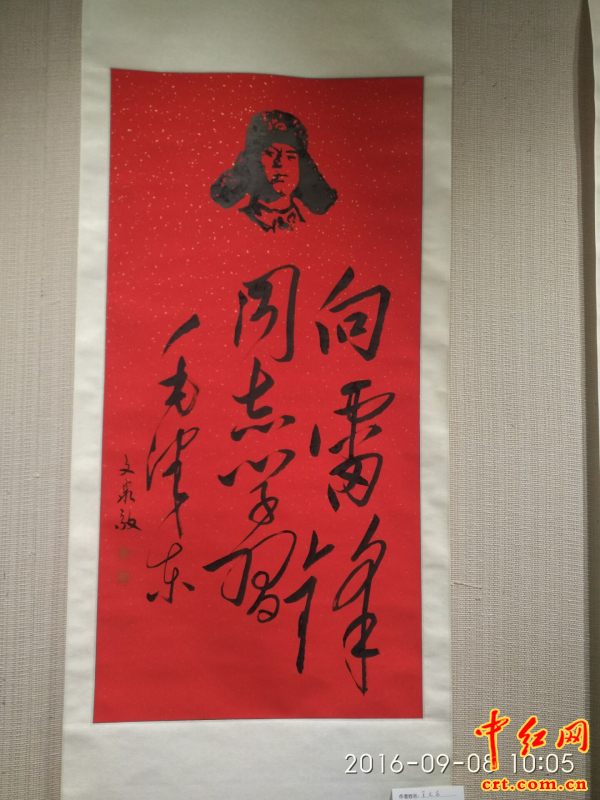 向雷锋
同志学习
毛泽东
2016-09-08 10:05
中红网
crt.com.cn